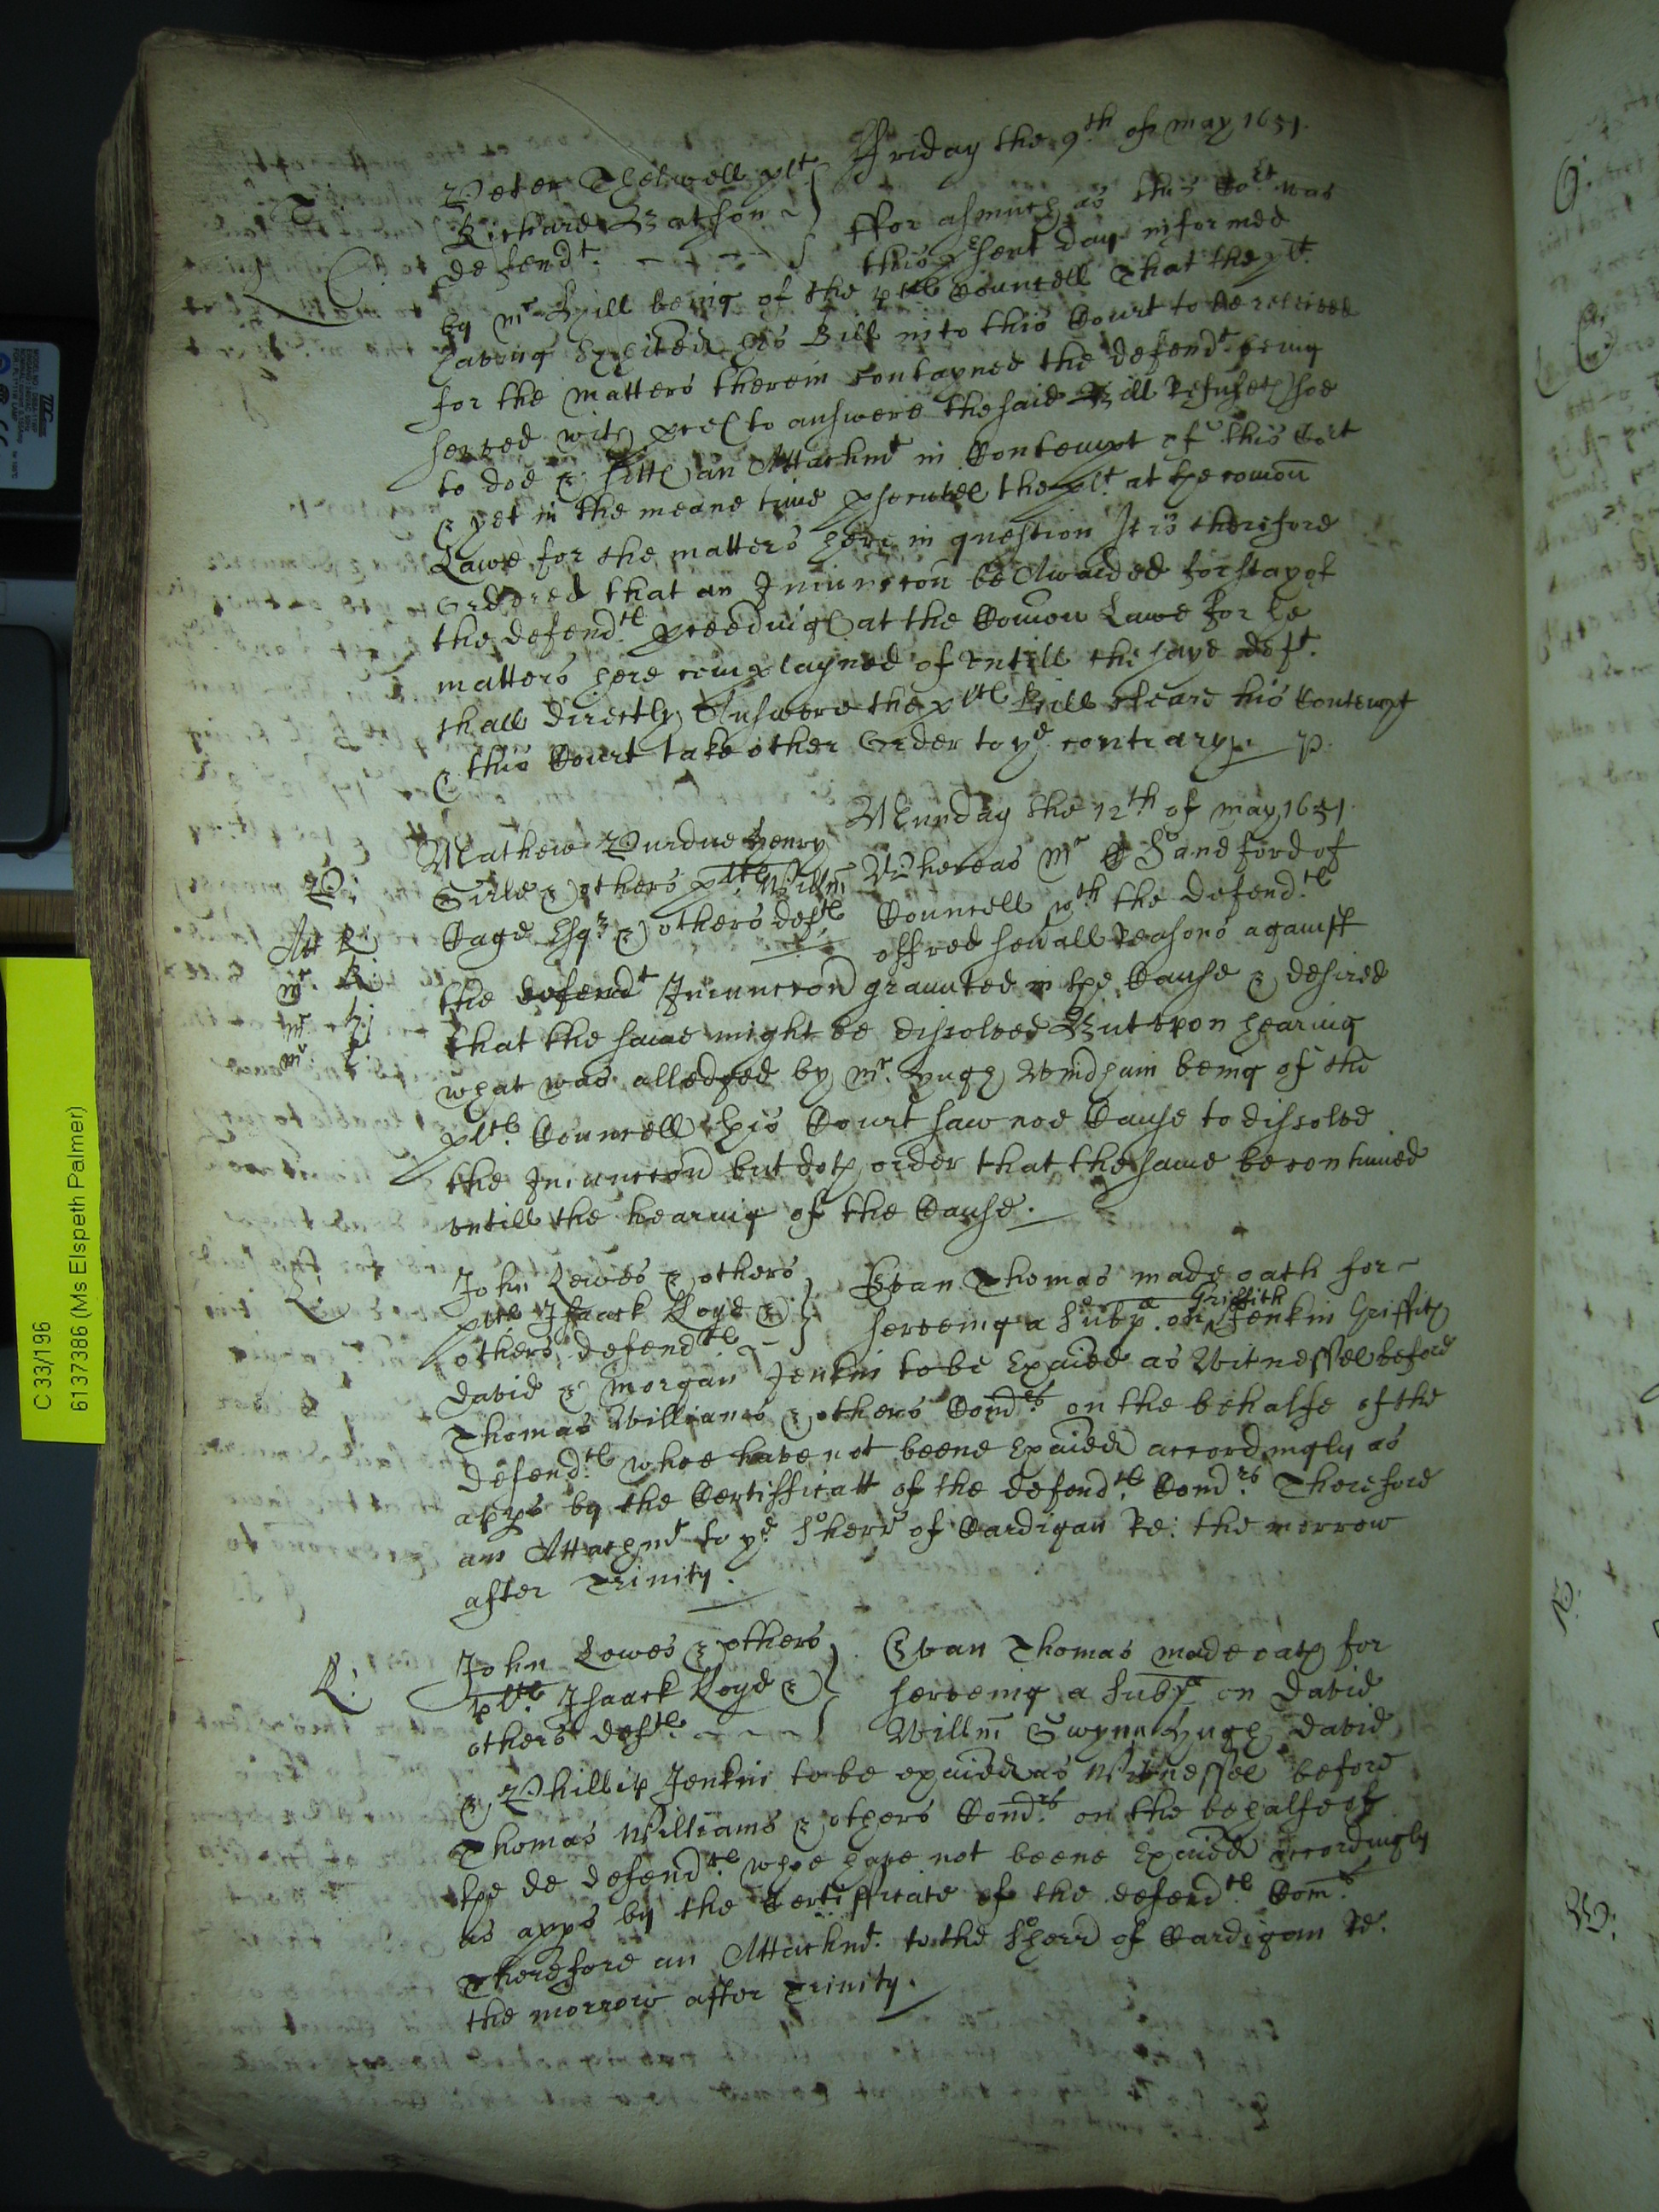 ffriday the 9th of may 1651.
T
Peter Thelwell plt
Richard Batson
defendt.
ffor asmuch as this Cort was
this psent day informed
by mr Hill being of the pltes Councell That the plt.
having Exhibited his Bill into this Court to be releived
for the matters therein contayned the defendt being
served with proces to answere the said Bill Refuseth soe
to doe & sitts an Attachmt in Contempt of this Cort
& yet in the meane time psecutes the plt. at the comon
Lawe for the matters here in question It is therefore
Ordered that an Iniunccon be Awarded for stay of
the defendtes proceedings at the Comon Lawe for ye
matters here complayned of untill the sayd deft.
shall directly Answere the pltes Bill cleare his Contempt
& this Court take other Order to ye contrary. p.
Munday the 12th of may 1651.
P.
Mathew Purdue Henry
Girle & others pltes Willm
Cage Esqr & others deftes
Whereas Mr E Sandford of
Councell wth the defendtes
offred sevall Reasons against
the defendt Iniunccon graunted in the Cause & desired
that the same might be dissolved But upon hearing
what was alledged by Mr. Hugh Windham being of the
pltes. Councell this Court saw noe Cause to dissolve
the Iniunccon but doth order that the same be continued
untill the hearing of the Cause.
L
John Lewes & others
pltes Isaack Lloyd &
others defendtes
Evan Thomas made oath for
serveing a Subp. on Griffith Jenkin Griffith
David & Morgan Jenkin to be Exaied as Witnesses before
Thomas Williams & others Comrs on the behalfe of the
defendtes whoe have not beene Exaied accordingly as
apps by the Certifficatt of the defendtes Comrs Therefore
an Attachmt to ye Sherr of Cardigan Re: the morrow
after Trinity.
L:
John Lewes & others
pltes. Isaack Lloyd &
others deftes
Evan Thomas made oath for
serveing a Subp on David
Willm Gwynn Hugh David
& Phillip Jenkin to be exaied as Witnesses before
Thomas Williams & others Comrs on the behalfe of
the de defendtes whoe have not beene Exaied accordingly
as apps by the Certifficate of the defendtes Comrs
Therefore an Attachmt. to the Sherr of Cardigan Re.
the morrow after Trinity.
C 33/196
6137386 (Ms Elspeth Palmer)